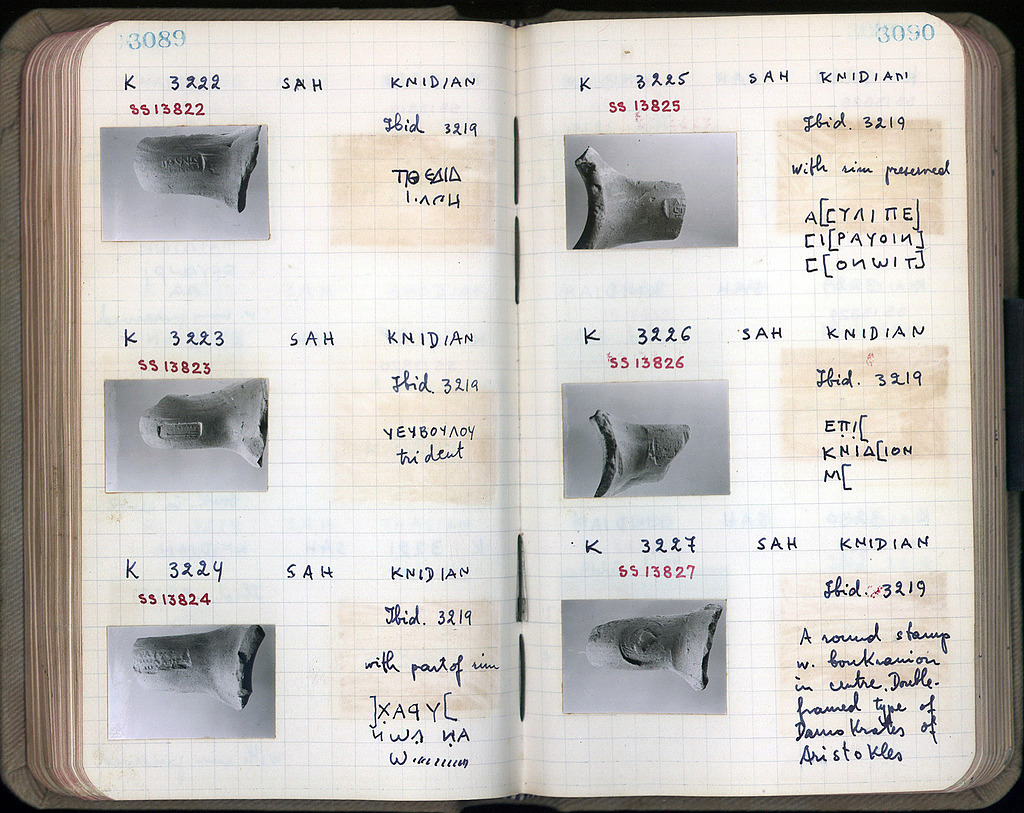 3089
K 3222 SAH KNIDIAN
SS 13822
Ibid 3219
K 3223 SAH KNIDIAN
SS 13823
Ibid. 3219
ΥΕΥΒΟΥΛΟΥ
trident
K 3224 SAH KNIDIAN
SS 13824
Ibid. 3219
with part of rim
3090
K 3225 SAH KNIDIAN
SS 13825
Ibid. 3219
with rim preserved
Α[ΣΥΛΙΠΕ]
ΣΙ[ΡΑΥΟΙИ]
Σ[ΟИWΙΤ]
K 3226 SAH KNIDIAN
SS 13826
Ibid. 3219
ΕΠΙ[
ΚΝΙΔ[ΙΟΝ
Μ[
K 3227 SAH KNIDIAN
SS 13827
Ibid. 3219
A round stamp
w. boukranion
in centre. Double-
framed type of
Damokrates of
Aristokles